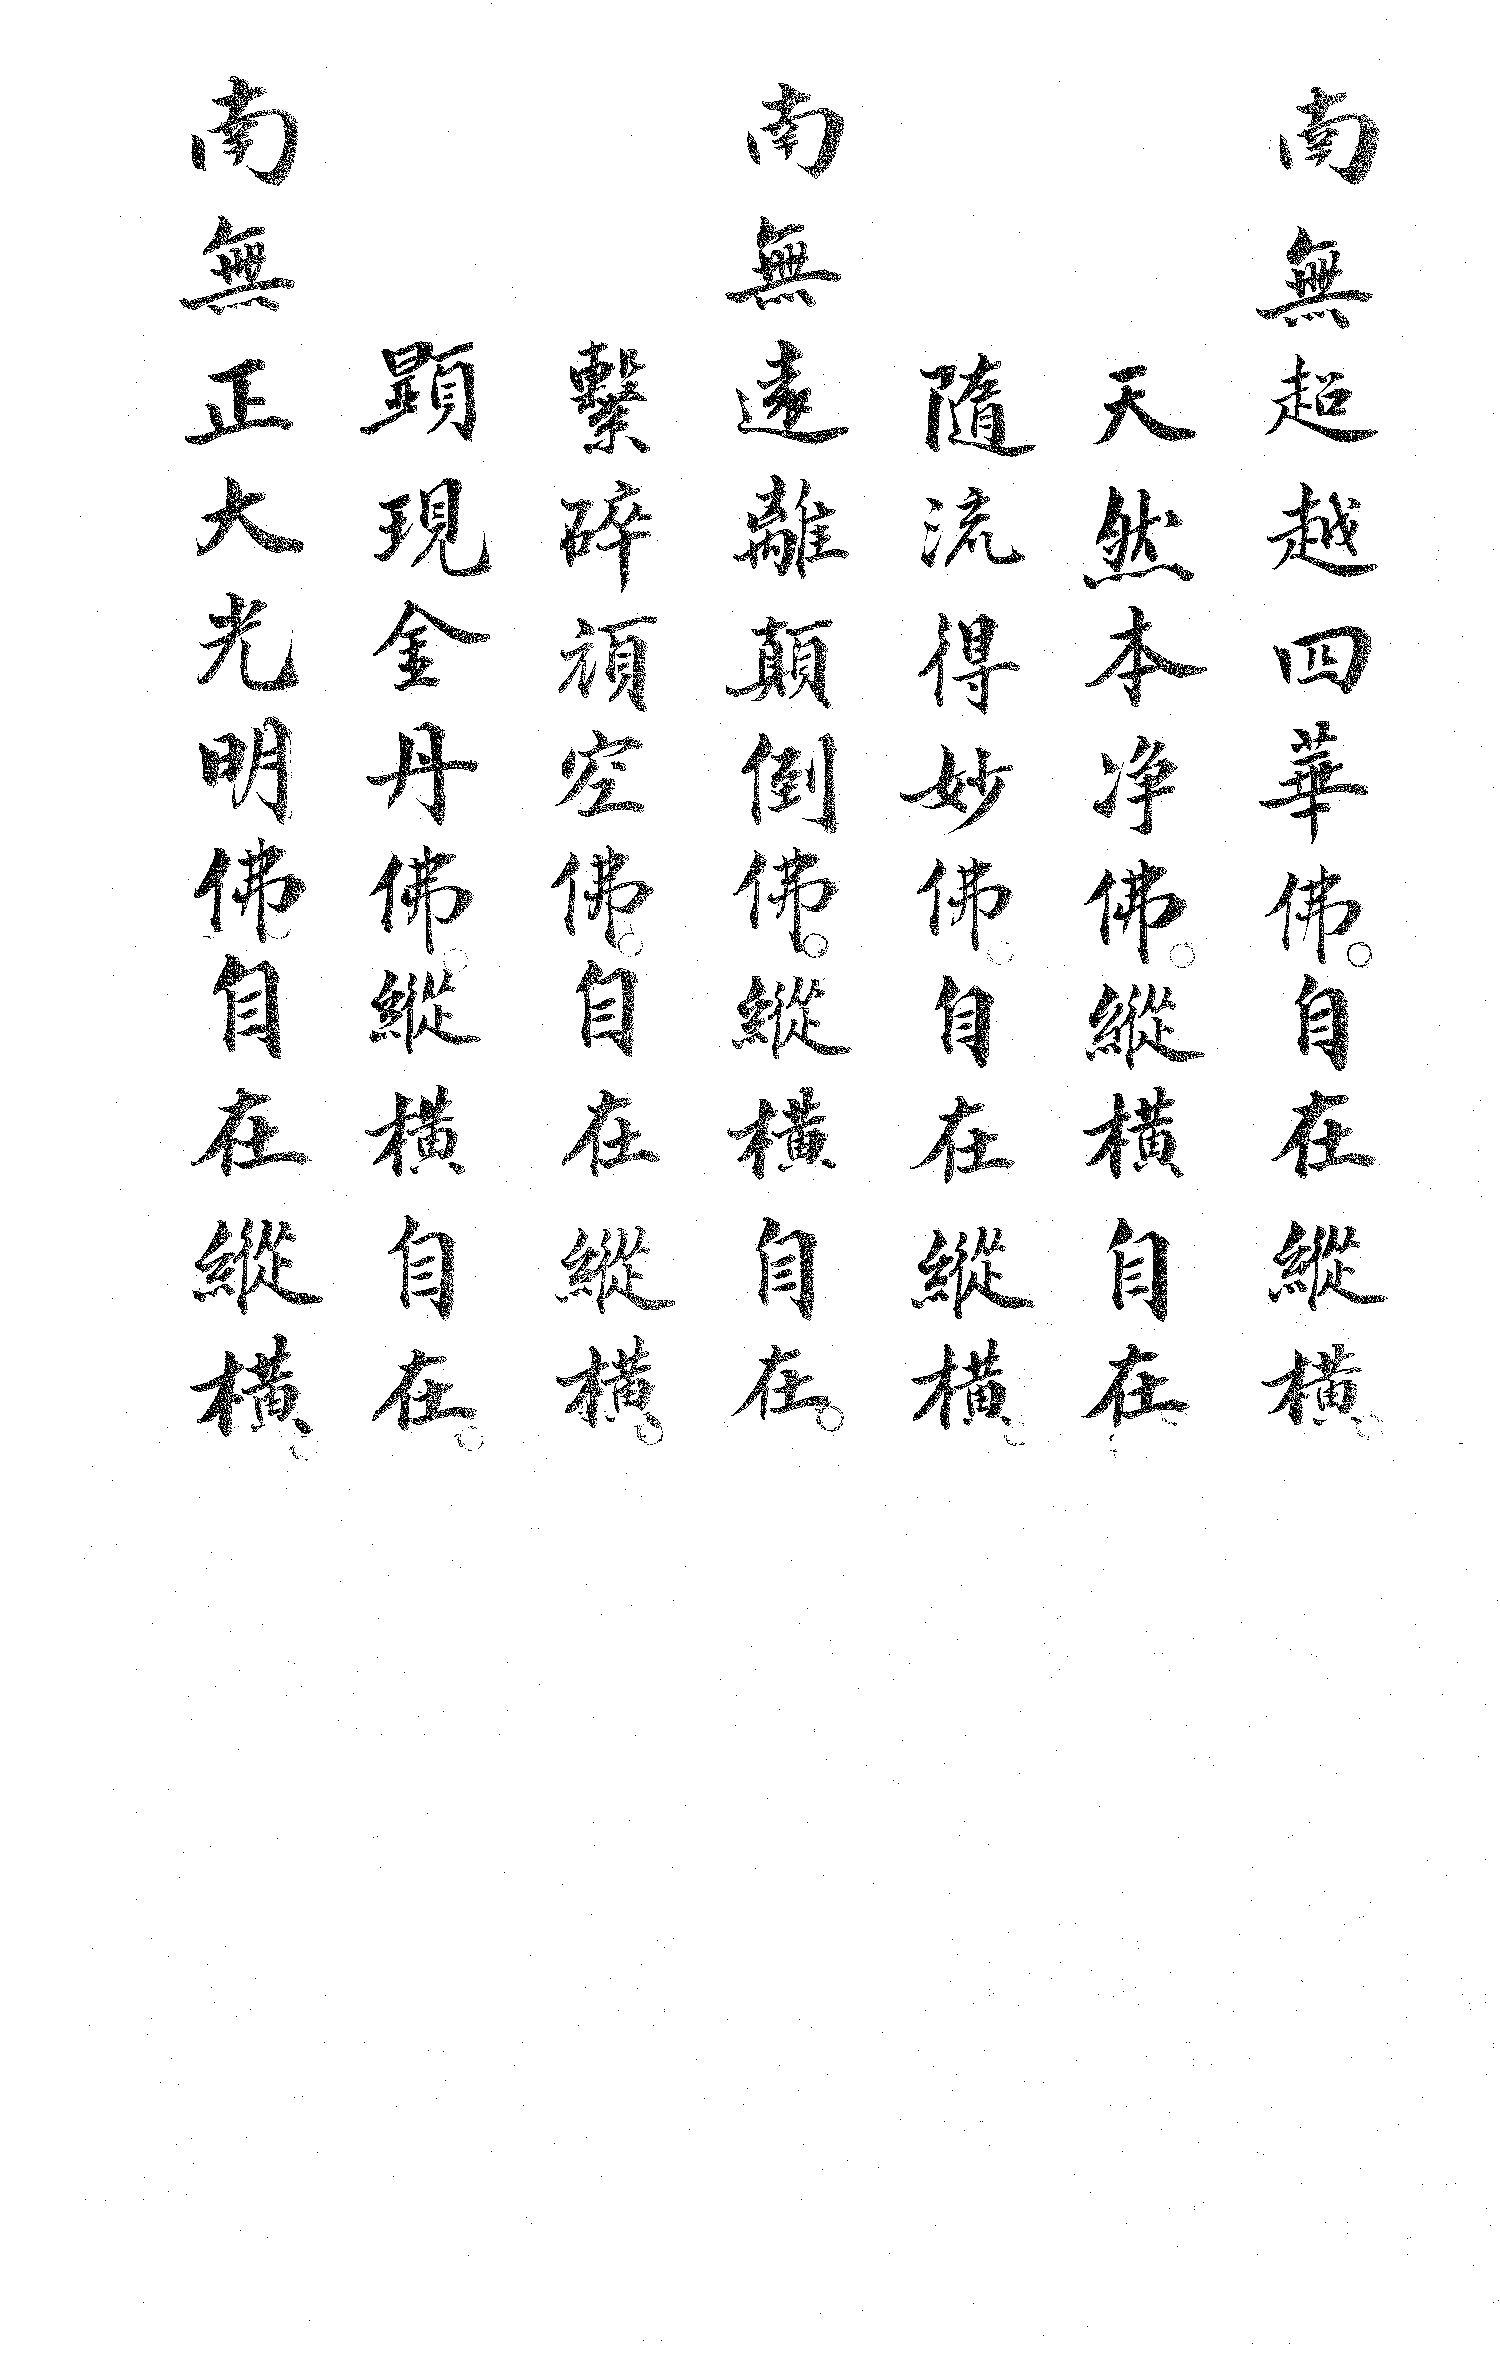 南無超越四華佛。自在縱橫。
天然本净佛。縱橫自在。
隨流得妙佛。自在縱橫。
南無遠離顛倒佛。縱橫自在。
繫碎頑空佛。自在縱橫。
顯現金丹佛。縱橫自在。
南無正大光明佛。自在縱橫。